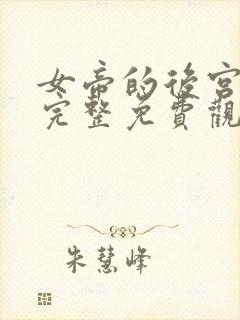 女帝的後宮
完整免費觀
朱慧峰